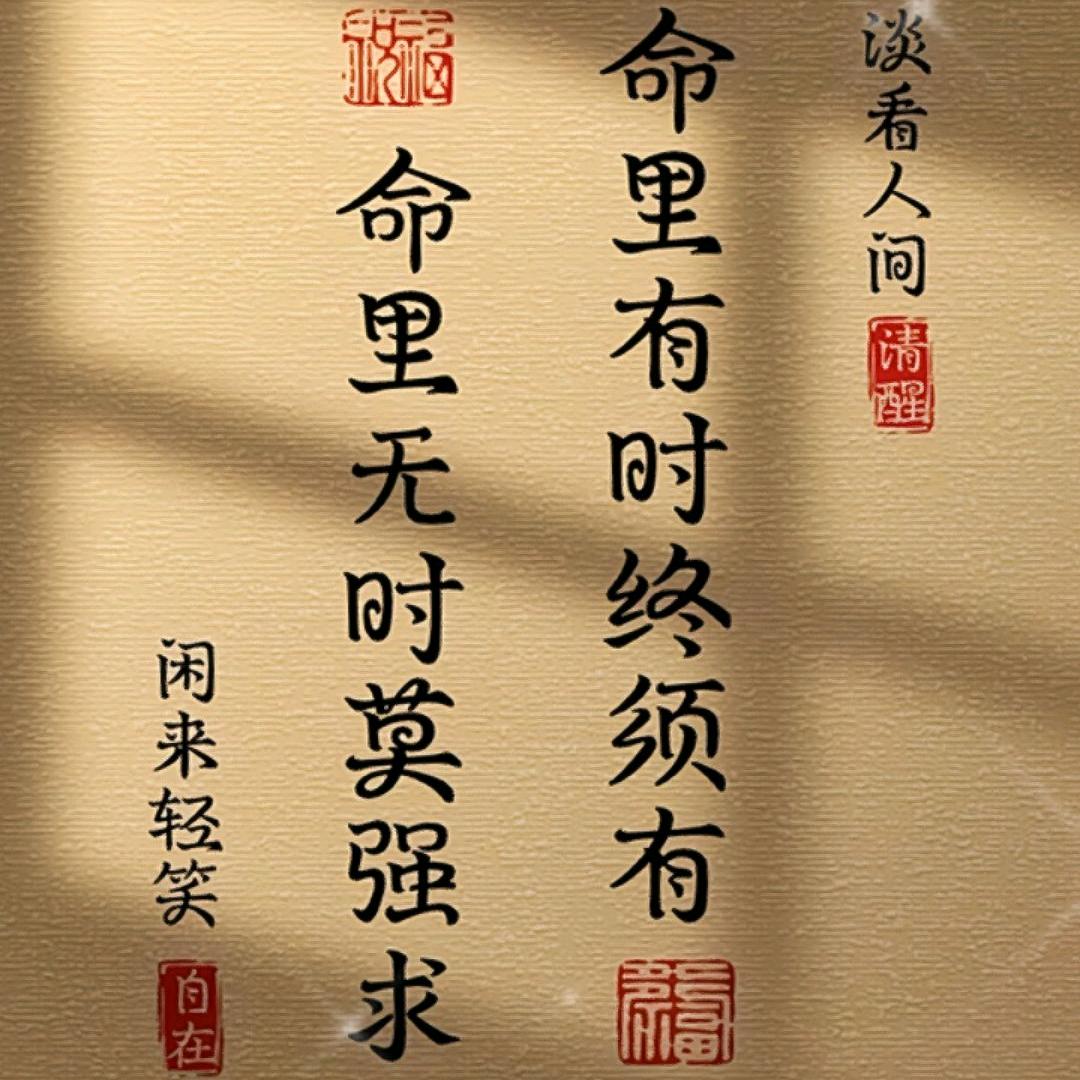 淡看人间
清醒
命里有时终须有
命里无时莫强求
闲来轻笑
自在